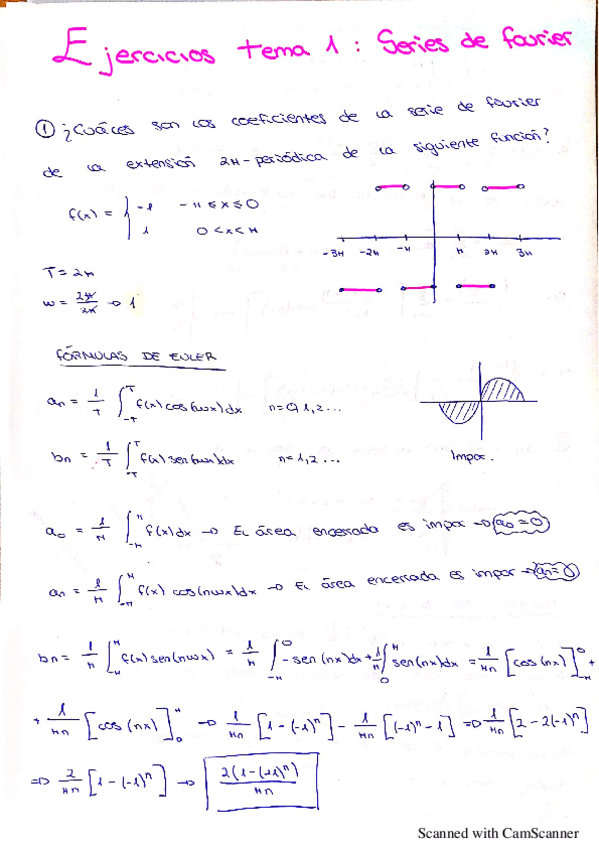 Ejercicios tema 1: Series de fourier
① ¿Cuáles son los coeficientes de la serie de fourier
de la extensión 2π-periódica de la siguiente función?
f(x) = { -1   -π ≤ x ≤ 0
1   0 < x < π
-3π -2π -π π 2π 3π
T = 2π
w = 2π/2π → 1
FÓRMULAS DE EULER
an = 1/T ∫_-T^T f(x) cos(nwx) dx   n=0,1,2...
bn = 1/T ∫_-T^T f(x) sen(nwx) dx   n=1,2...
Impar.
a0 = 1/π ∫_-π^π f(x) dx → El área encerrada es impar → a0 = 0
an = 1/π ∫_-π^π f(x) cos(nwx) dx → El área encerrada es impar → an = 0
bn = 1/π ∫_-π^π f(x) sen(nwx) = 1/π ∫_-π^0 -sen(nx) dx + 1/π ∫_0^π sen(nx) dx = 1/πn [cos(nx)]_-π^0 +
+ 1/πn [cos(nx)]_0^π → 1/πn [1-(-1)^n] - 1/πn [(-1)^n - 1] ⇒ 1/πn [2-2(-1)^n]
⇒ 2/πn [1-(-1)^n] → 2(1-(-1)^n)/πn
Scanned with CamScanner